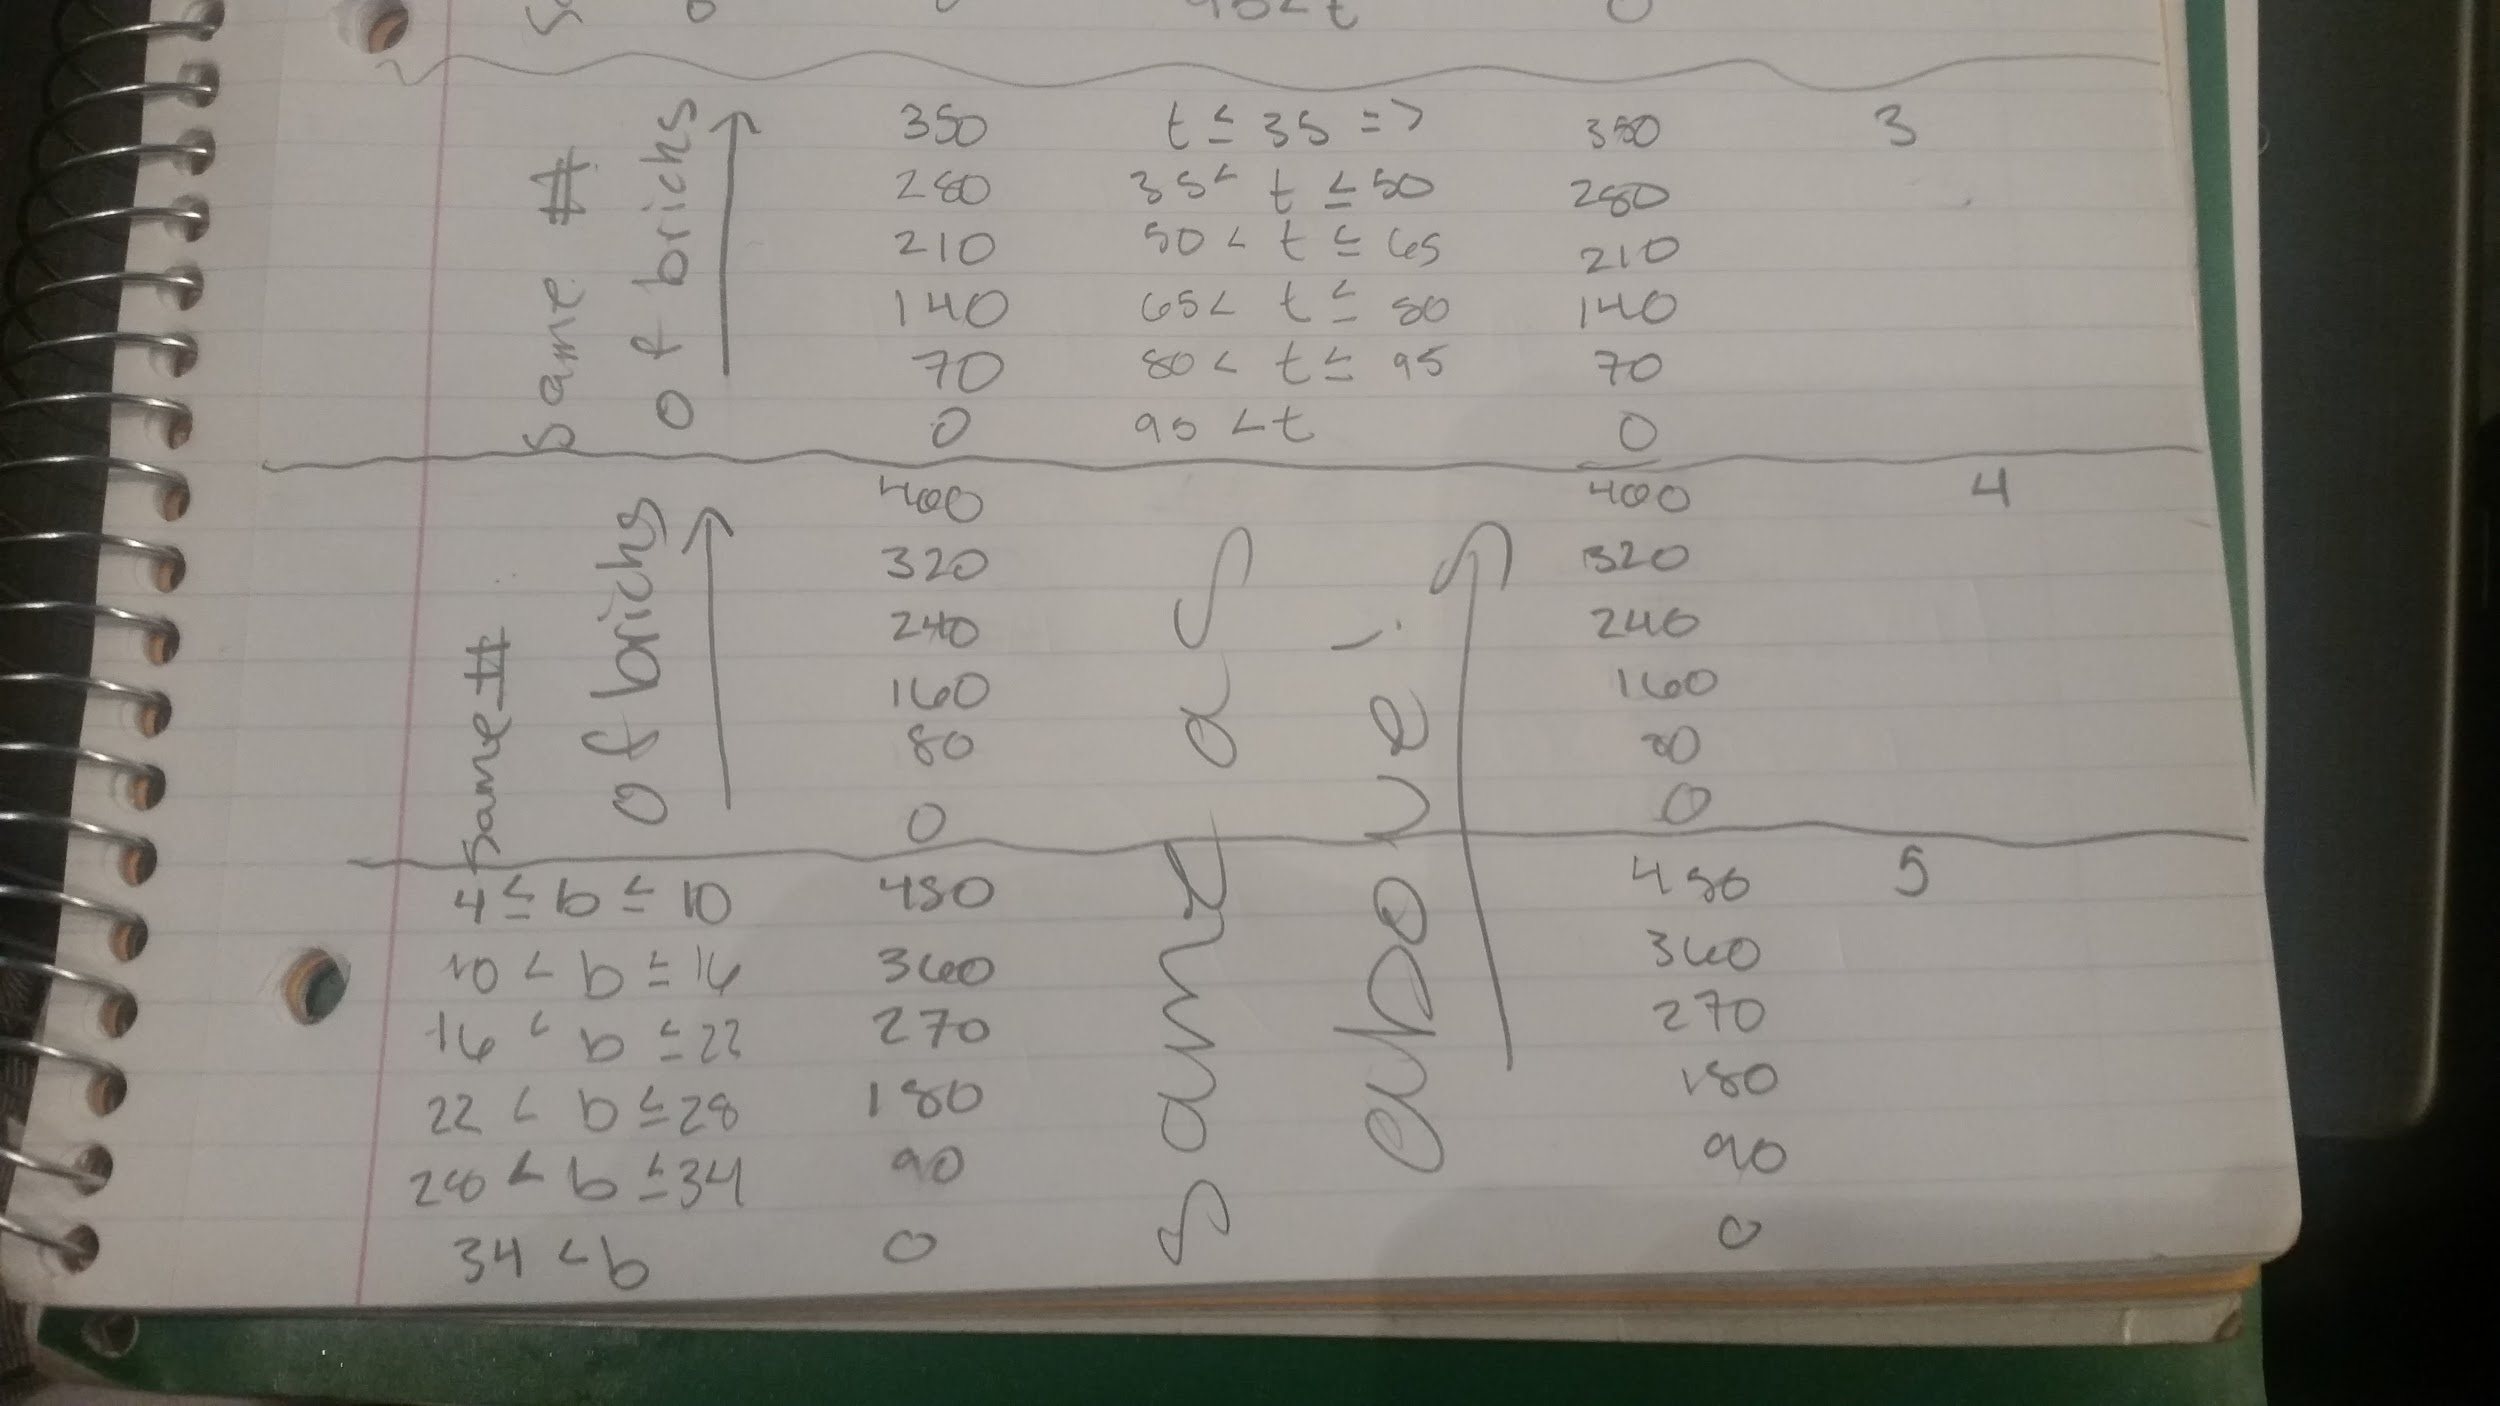 95 < t 0
Same #
of bricks
350 t ≤ 35 => 350 3
280 35 < t ≤ 50 280
210 50 < t ≤ 65 210
140 65 < t ≤ 80 140
70 80 < t ≤ 95 70
0 95 < t 0
Same #
of bricks
400 400 4
320 320
240 240
160 160
80 80
0 0
Same as
above
4 ≤ b ≤ 10 450 450 5
10 < b ≤ 16 360 360
16 < b ≤ 22 270 270
22 < b ≤ 28 180 180
28 < b ≤ 34 90 90
34 < b 0 0